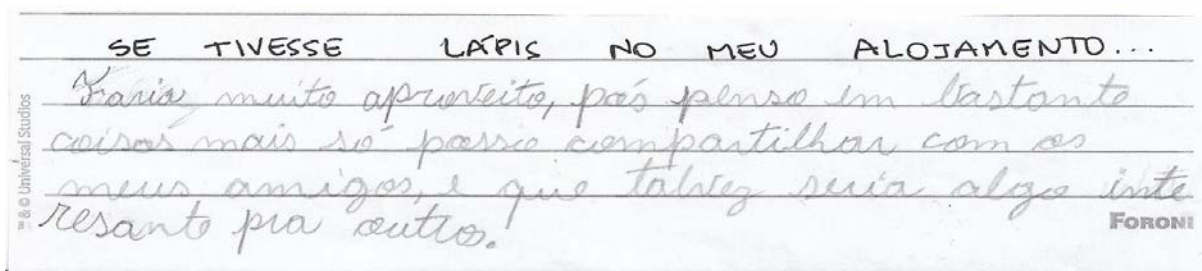 SE TIVESSE LÁPIS NO MEU ALOJAMENTO...
Faria muito aproveito, pós penso em bastante
coisas mais só posso compartilhar com os
meus amigos, e que talvez seria algo inte
resante pra outros.
™ & © Universal Studios
FORONI